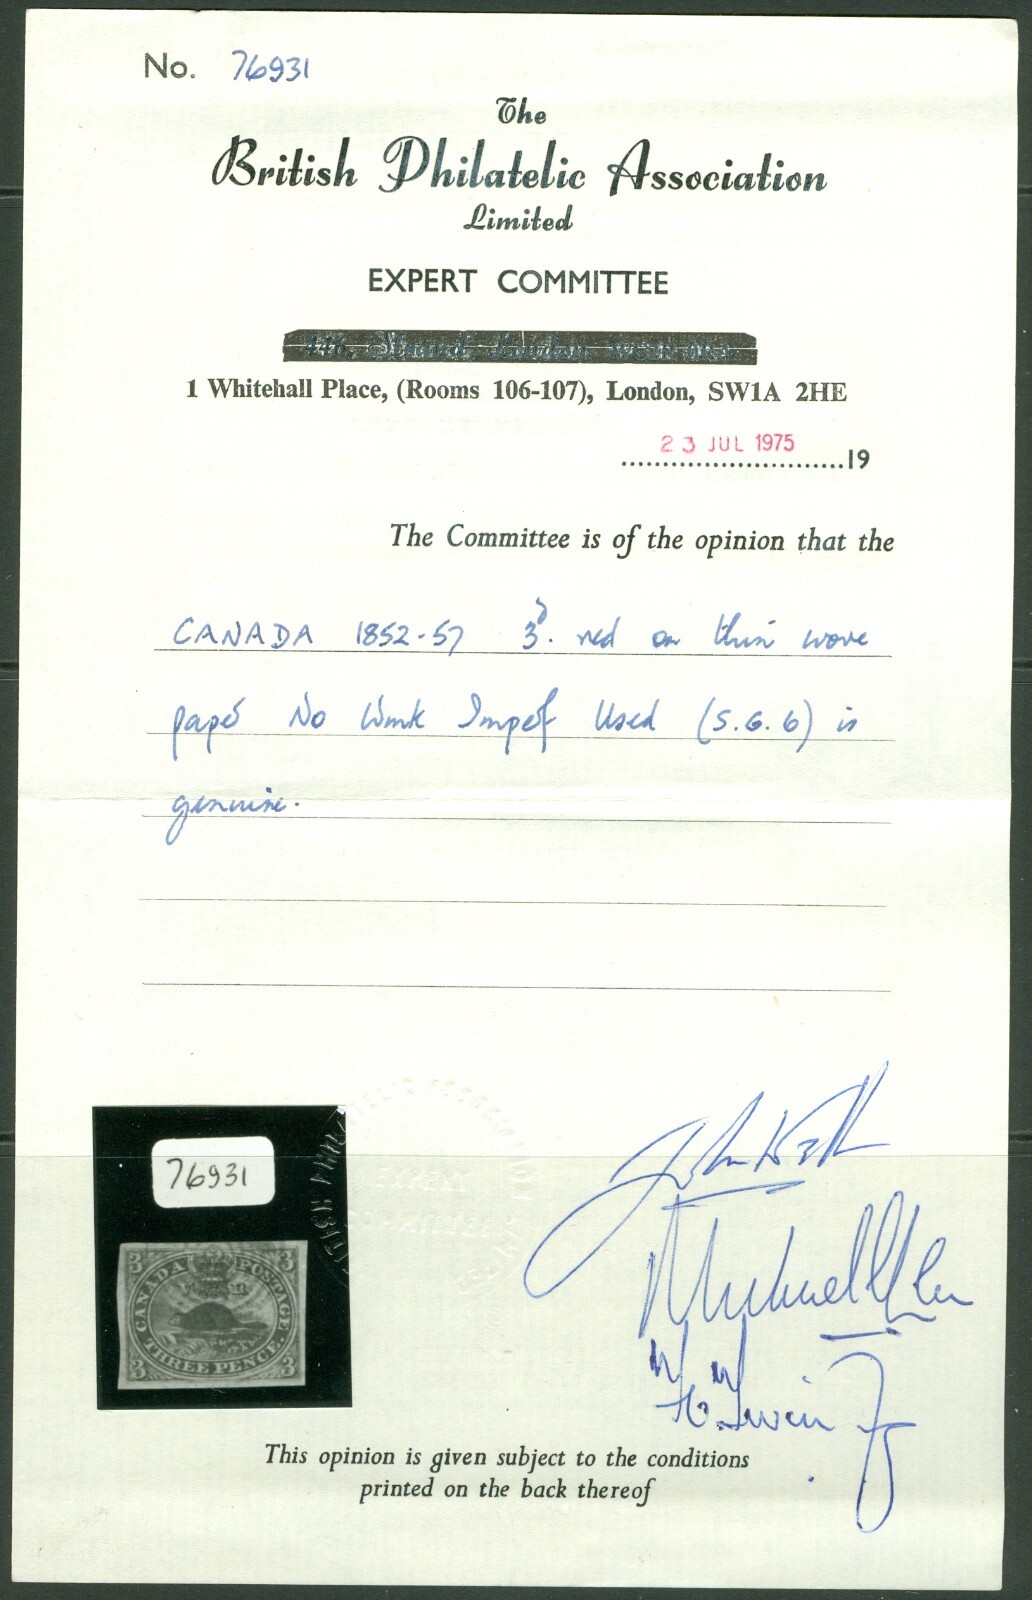 No. 76931
The
British Philatelic Association
Limited
EXPERT COMMITTEE
1 Whitehall Place, (Rooms 106-107), London, SW1A 2HE
23 JUL 1975 19
The Committee is of the opinion that the
CANADA 1852-57 3d. red on thin wove
paper No Wmk Imperf Used (S.G. 6) is
genuine.
76931
3 CANADA POSTAGE 3
3 THREE PENCE 3
This opinion is given subject to the conditions
printed on the back thereof